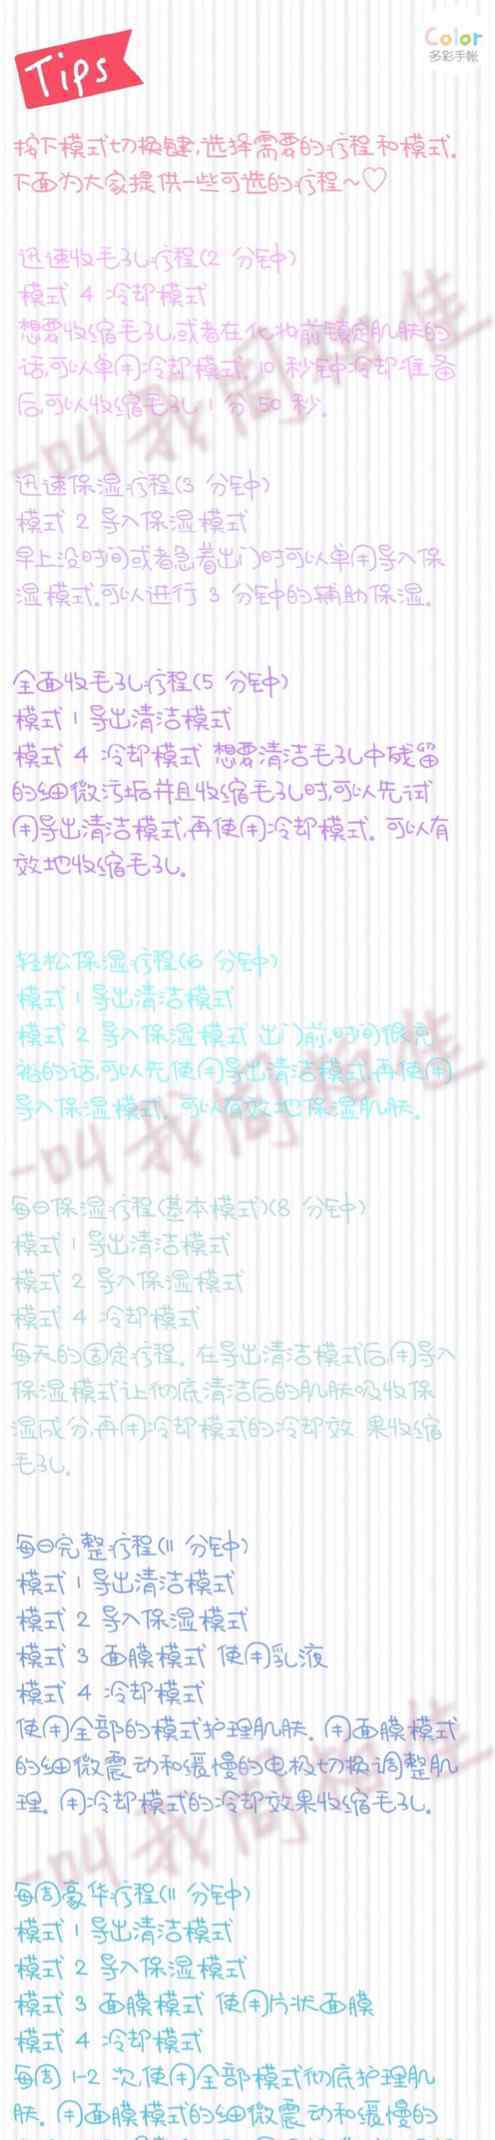 Color
多彩手帐
Tips
按下模式切换键,选择需要的疗程和模式.
下面为大家提供一些可选的疗程~♡
迅速收毛孔疗程(2 分钟)
模式 4 冷却模式
想要收缩毛孔,或者在化妆前镇定肌肤的
话,可以单用冷却模式. 10 秒钟冷却准备
后,可以收缩毛孔 1 分 50 秒.
迅速保湿疗程(3 分钟)
模式 2 导入保湿模式
早上没时间或者急着出门时可以单用导入保
湿模式.可以进行 3 分钟的辅助保湿.
全面收毛孔疗程(5 分钟)
模式 1 导出清洁模式
模式 4 冷却模式 想要清洁毛孔中残留
的细微污垢并且收缩毛孔时,可以先试
用导出清洁模式,再使用冷却模式. 可以有
效地收缩毛孔.
轻松保湿疗程(6 分钟)
模式 1 导出清洁模式
模式 2 导入保湿模式 出门前,时间很充
裕的话,可以先使用导出清洁模式,再使用
导入保湿模式. 可以有效地保湿肌肤.
每日保湿疗程(基本模式)(8 分钟)
模式 1 导出清洁模式
模式 2 导入保湿模式
模式 4 冷却模式
每天的固定疗程. 在导出清洁模式后,用导入
保湿模式让彻底清洁后的肌肤吸收保
湿成分,再用冷却模式的冷却效 果收缩
毛孔.
每日完整疗程(11 分钟)
模式 1 导出清洁模式
模式 2 导入保湿模式
模式 3 面膜模式 使用乳液
模式 4 冷却模式
使用全部的模式护理肌肤. 用面膜模式
的细微震动和缓慢的电极切换调整肌
理. 用冷却模式的冷却效果收缩毛孔.
每周豪华疗程(11 分钟)
模式 1 导出清洁模式
模式 2 导入保湿模式
模式 3 面膜模式 使用片状面膜
模式 4 冷却模式
每周 1-2 次,使用全部模式彻底护理肌
肤. 用面膜模式的细微震动和缓慢的